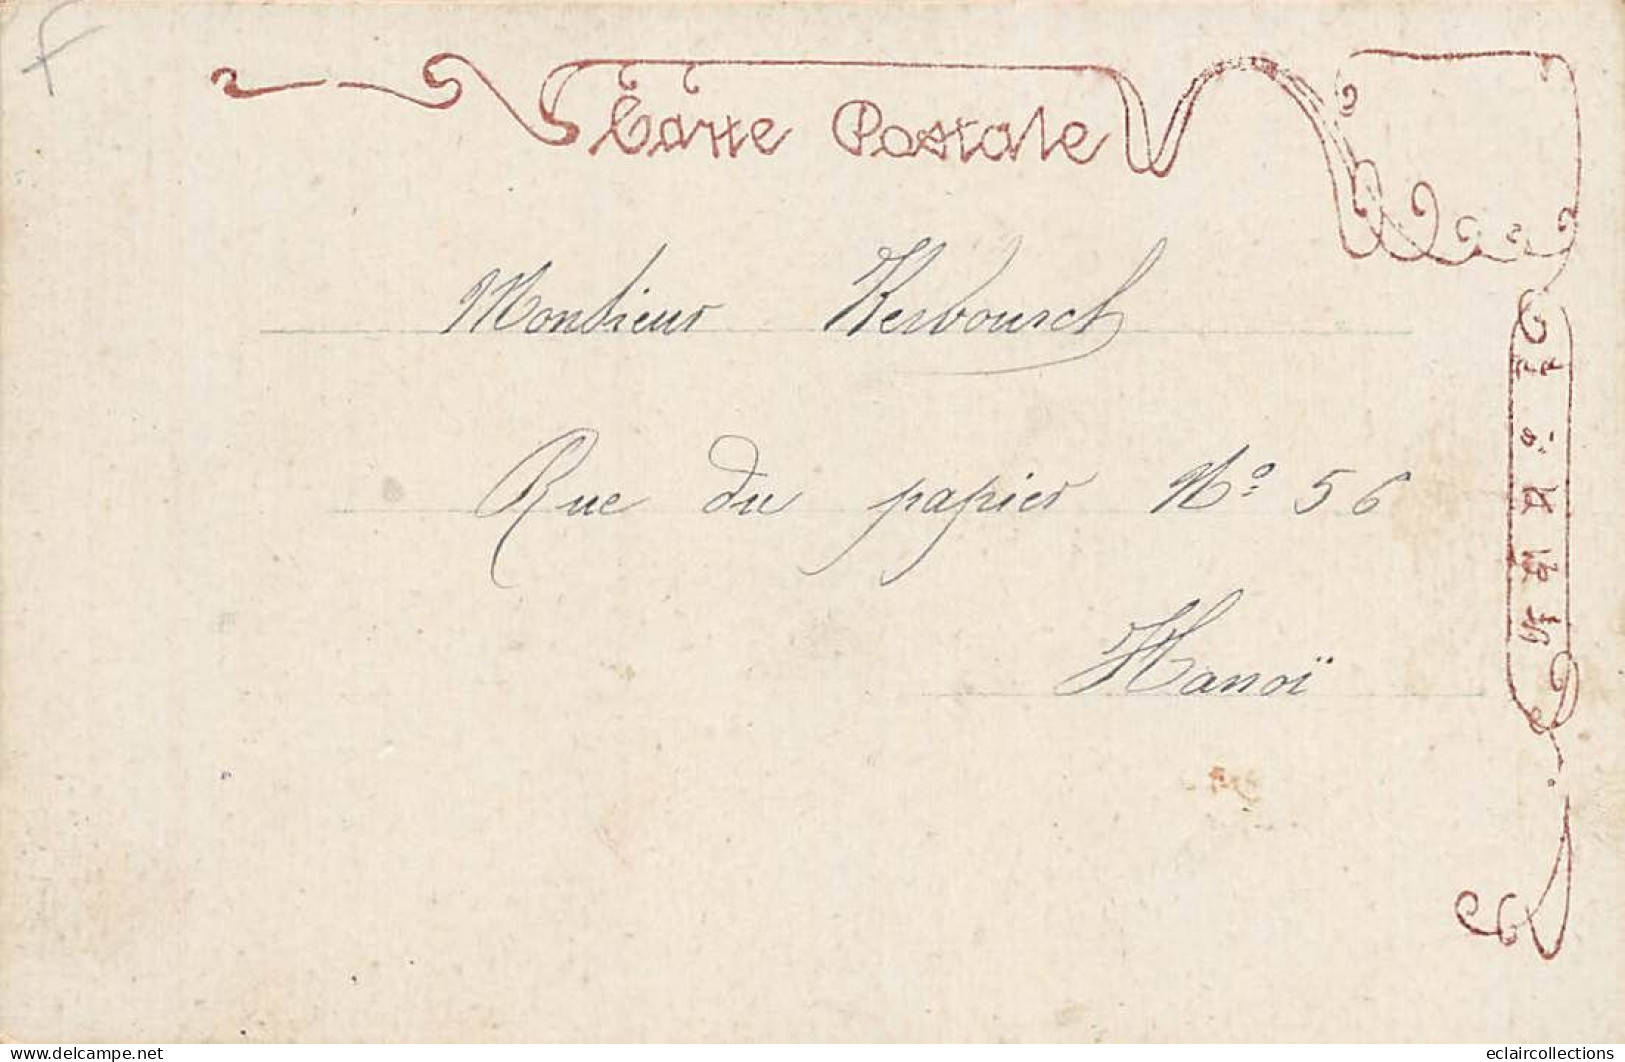 Carte Postale
Monsieur Kerbourch
Rue du papier Nº 56
Hanoï
www.delcampe.net
eclaircollections